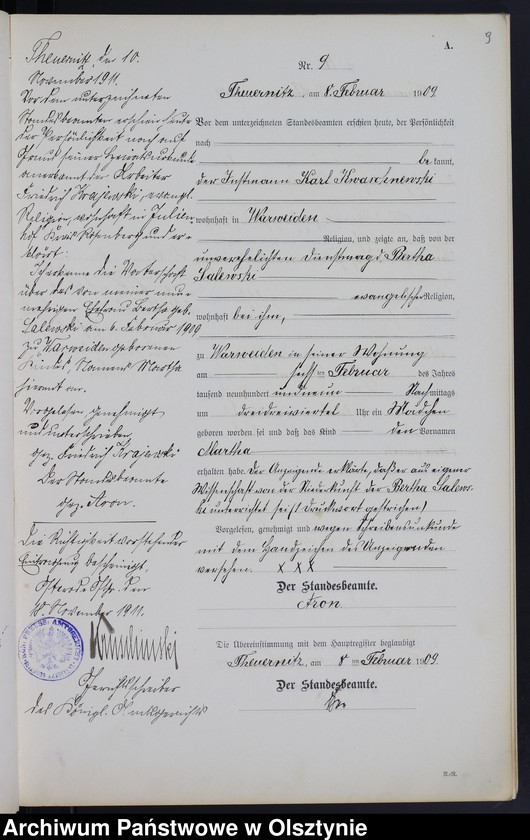 9
A.
Nr. 9
Theuernitz, am 8. Februar 1909
Vor dem unterzeichneten Standesbeamten erschien heute, der Persönlichkeit
nach
bekannt,
der Instmann Karl Kwasznewski
wohnhaft in Warweiden
Religion, und zeigte an, daß von der
unverehelichten Dienstmagd Bertha
Salewski
evangelischer Religion,
wohnhaft bei ihm,
zu Warweiden in seiner Wohnung
am sechsten Februar des Jahres
tausend neunhundert und neun Nachmittags
um dreidreiviertel Uhr ein Mädchen
geboren worden sei und daß das Kind den Vornamen
Martha
erhalten habe. Der Anzeigende erklärte, daß er aus eigener
Wissenschaft von der Niederkunft der Bertha Salews-
ki unterrichtet sei (1 Druckwort gestrichen)
Vorgelesen, genehmigt und wegen Schreibensunkunde
mit dem Handzeichen des Anzeigenden
versehen. X X X
Der Standesbeamte.
Aron.
Die Übereinstimmung mit dem Hauptregister beglaubigt
Theuernitz, am 8ten Februar 1909
Der Standesbeamte.
Theuernitz, den 10.
November 1911.
Vor dem unterzeichneten
Standesbeamten erschien heute
der Persönlichkeit nach auf
Grund seiner Heiratsurkunde
anerkannt der Arbeiter
Friedrich Krajewski, evangl.
Religion, wohnhaft in Julien-
hof Kreis Rosenberg und er-
klärt:
Ich erkenne die Vaterschaft
über das von meiner nun-
mehrigen Ehefrau Bertha geb.
Salewski am 6. Februar 1909
zu Warweiden geborenen
Kindes, Namens Martha
hiermit an.
Vorgelesen genehmigt
und unterschrieben
gez. Friedrich Krajewski
Der Standesbeamte
gez. Aron.
Die Richtigkeit vorstehender
Eintragung bescheinigt.
Osterode Ostpr. den
18. November 1911.
Gerichtsschreiber
des Königl. Amtsgerichts
Archiwum Państwowe w Olsztynie